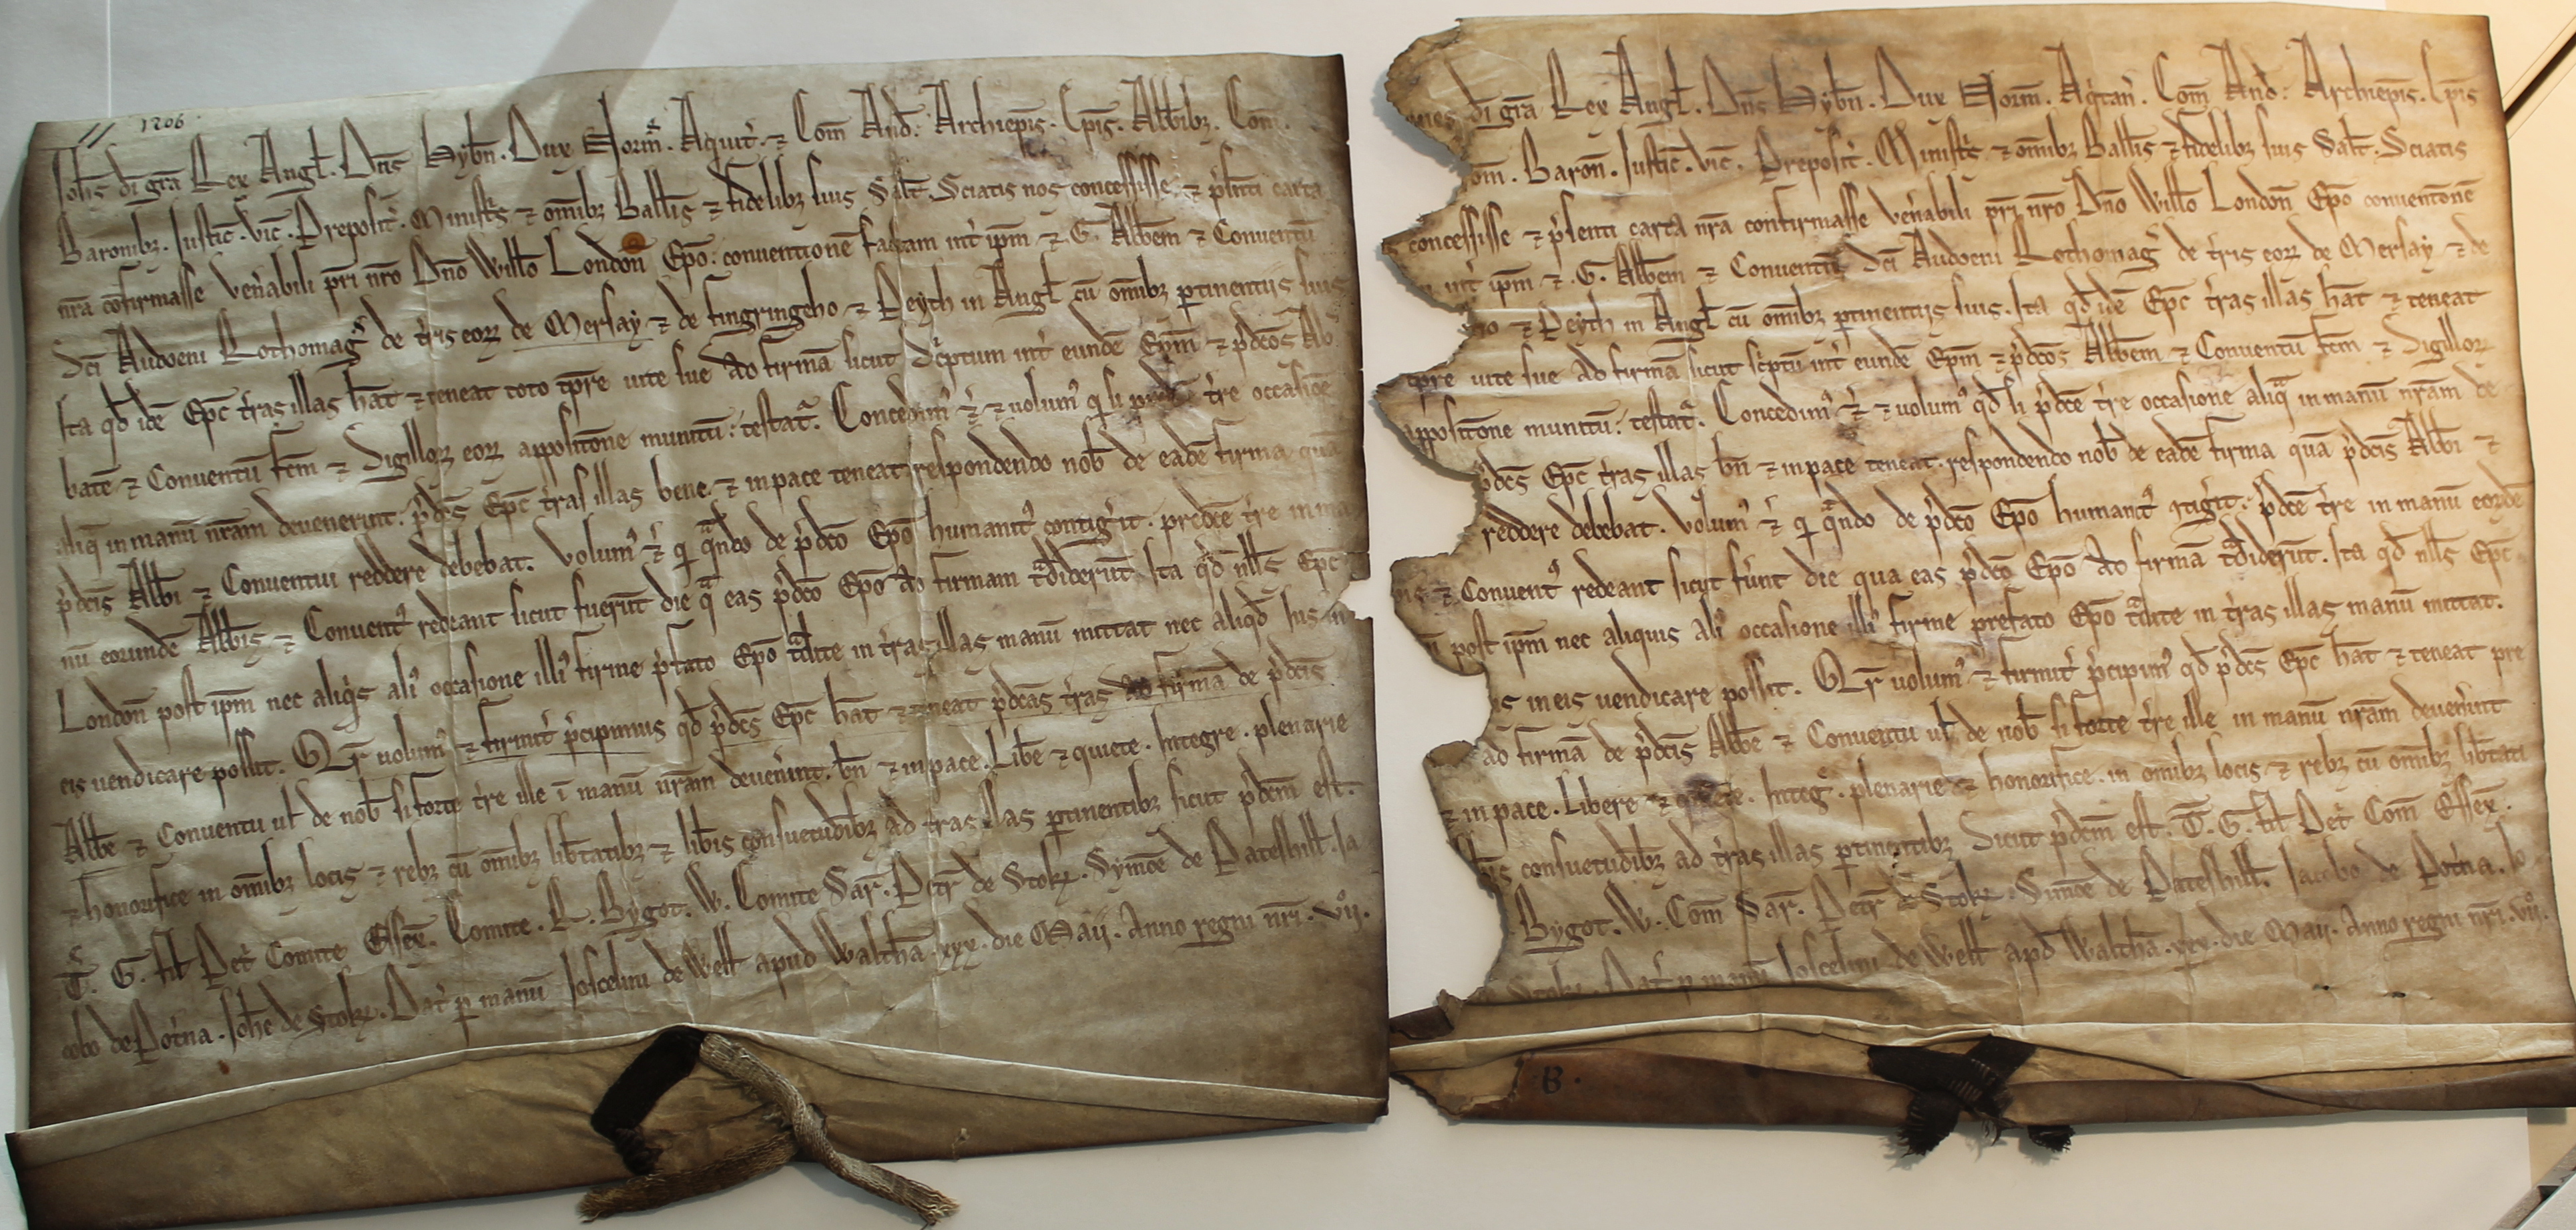 1206
Joh̄s dī gr̄a Rex Angl̄. Dn̄s Hyb̄n. Dux Norm̄. Aquit̄. ⁊ Com̄ And̄. Archiep̄is. Ep̄is. Abb̄ibꝫ. Com̄.
Baronibꝫ. Justic̄. Vic̄. Preposit̄. Minist̄s ⁊ om̄ibꝫ Ball̄is ⁊ fidelibꝫ suis Sal̄t. Sciatis nos concessisse ⁊ p̄senti carta
nr̄a cōfirmasse ven̄abili pr̄i nr̄o Dn̄o Will̄o London̄ Ep̄o: conventionē factam int̄ ip̄m ⁊ G. Abb̄em ⁊ Conventū
Sc̄i Audoeni Rothomaḡ de t̄ris eoꝝ de Mersay ⁊ de fingringeho ⁊ Peyth in Angl̄ cū om̄ibꝫ ꝑtinentiis suis
Ita qd̄ idē Ep̄c t̄ras illas hēat ⁊ teneat toto tp̄re vite sue ad firmā sicut sc̄ptum int̄ eundē Ep̄m ⁊ p̄dc̄os Ab
batē ⁊ Conventū fc̄m ⁊ Sigilloꝝ eoꝝ appositōne munitū: testat̄. Concedim᷒ ⁊̄ ⁊ volum᷒ qd̄ si t̄re occasiōe
aliq̄ in manū nr̄am devenerint. p̄dc̄s Ep̄c t̄ras illas bene ⁊ in pace teneat respondendo nob̄ de eadē firma quā
p̄dc̄is Abb̄i ⁊ Conventui reddere debebat. Volum᷒ ⁊̄ qd̄ qn̄do de p̄dc̄o Ep̄o humanit᷒ contiḡit. predc̄e t̄re in ma
nū eorundē Abb̄is ⁊ Convent᷒ redeant sicut fuerūt die q̄ eas p̄dc̄o Ep̄o ad firmam t̄diderūt. Ita qd̄ nll̄s Ep̄c
London̄ post ip̄m nec aliq̄s ali᷒ occasione illi᷒ firme p̄fato Ep̄o t̄dite in t̄ras illas manū mittat nec aliqd̄ Jus in
eis vendicare possit. Qr̄ volum᷒ ⁊ firmit̄ p̄cipimus qd̄ p̄dc̄s Ep̄c hēat ⁊ teneat p̄dc̄as t̄ras ad firmā de p̄dc̄is
Abb̄e ⁊ Conventu vl̄ de nob̄ si forte t̄re ille ī manū nr̄am deven̄int. bn̄ ⁊ in pace. Lib̄e ⁊ quiete. Integre. plenarie
⁊ honorifice in om̄ibꝫ locis ⁊ rebꝫ cū om̄ibꝫ lib̄tatibꝫ ⁊ lib̄is consuetudībꝫ ad t̄ras illas ꝑtinentibꝫ sicut p̄dc̄m est.
T̄. G. fil̄ Pet̄ Comite Essex̄. Comite. R. Bygot. W. Comite Sar̄. Petr̄ de Stok̄. Symōe de Pateshill̄. Ja
cobo de Pot̄na. Joh̄e de Stok̄. Dat̄ ꝑ manū Joscelini de Well̄ apud Walthā. xxx. die Maij. Anno regni nr̄i. vij.
dī gr̄a Rex Angl̄. Dn̄s Hyb̄n. Dux Norm̄. Aq̄tan̄. Com̄ And̄: Archiep̄is. Ep̄is
om̄. Baron̄. Justic̄. Vic̄. Preposit̄. Minist̄s ⁊ om̄ibꝫ Ball̄is ⁊ fidelibꝫ suis Sal̄t. Sciatis
concessisse ⁊ p̄senti carta nr̄a confirmasse ven̄abili pr̄i nr̄o Dn̄o Will̄o London̄ Ep̄o conventōnē
int̄ ip̄m ⁊ G. Abb̄em ⁊ Conventū Sc̄i Audoeni Rothomaḡ de t̄ris eoꝝ de Mersay ⁊ de
ho ⁊ Peyth in Angl̄ cū om̄ibꝫ ꝑtinentijs suis. Ita qd̄ idē Ep̄c t̄ras illas hēat ⁊ teneat
tp̄re vite sue ad firmā sicut sc̄ptū int̄ eundē Ep̄m ⁊ p̄dc̄os Abb̄em ⁊ Conventū fc̄m ⁊ Sigilloꝝ
appositōne munitū: testat̄. Concedim᷒ ⁊̄ ⁊ volum᷒ qd̄ si p̄dc̄e t̄re occasione aliq̄ in manū nr̄am de
p̄dc̄s Ep̄c t̄ras illas bn̄ ⁊ in pace teneat. respondendo nob̄ de eadē firma quā p̄dc̄is Abb̄i ⁊
reddere debebat. Volum᷒ ⁊̄ qd̄ qn̄do de p̄dc̄o Ep̄o humanit᷒ ꝯtiḡit: p̄dc̄e t̄re in manū eorūdē
⁊ Convent᷒ redeant sicut fūnt die qua eas p̄dc̄o Ep̄o ad firmā t̄diderūt. Ita qd̄ nll̄s Ep̄c
post ip̄m nec aliquis ali᷒ occasione illi᷒ firme prefato Ep̄o t̄dite in t̄ras illas manū mittat.
in eis vendicare possit. Qr̄ volum᷒ ⁊ firmit̄ p̄cipim᷒ qd̄ p̄dc̄s Ep̄c hēat ⁊ teneat pre
ad firmā de p̄dc̄is Abb̄e ⁊ Conventu vl̄ de nob̄ si forte t̄re ille in manū nr̄am deven̄int
⁊ in pace. Libere ⁊ quiete. Inteḡ. plenarie ⁊ honorifice. in om̄ibꝫ locis ⁊ rebꝫ cū om̄ibꝫ lib̄tati
consuetudībꝫ ad t̄ras illas ꝑtinentibꝫ Sicut p̄dc̄m est. T̄. G. fil̄ Pet̄ Com̄ Essex̄.
Bygot. W. Com̄ Sar̄. Petr̄ de Stok̄. Simōe de Pateshill̄. Jacobo de Pot̄na. Jo
Stok̄. Dat̄ ꝑ manū Joscelini de Well̄ apd̄ Walthā. xxx. die Maij. Anno regni nr̄i. vij.
B.